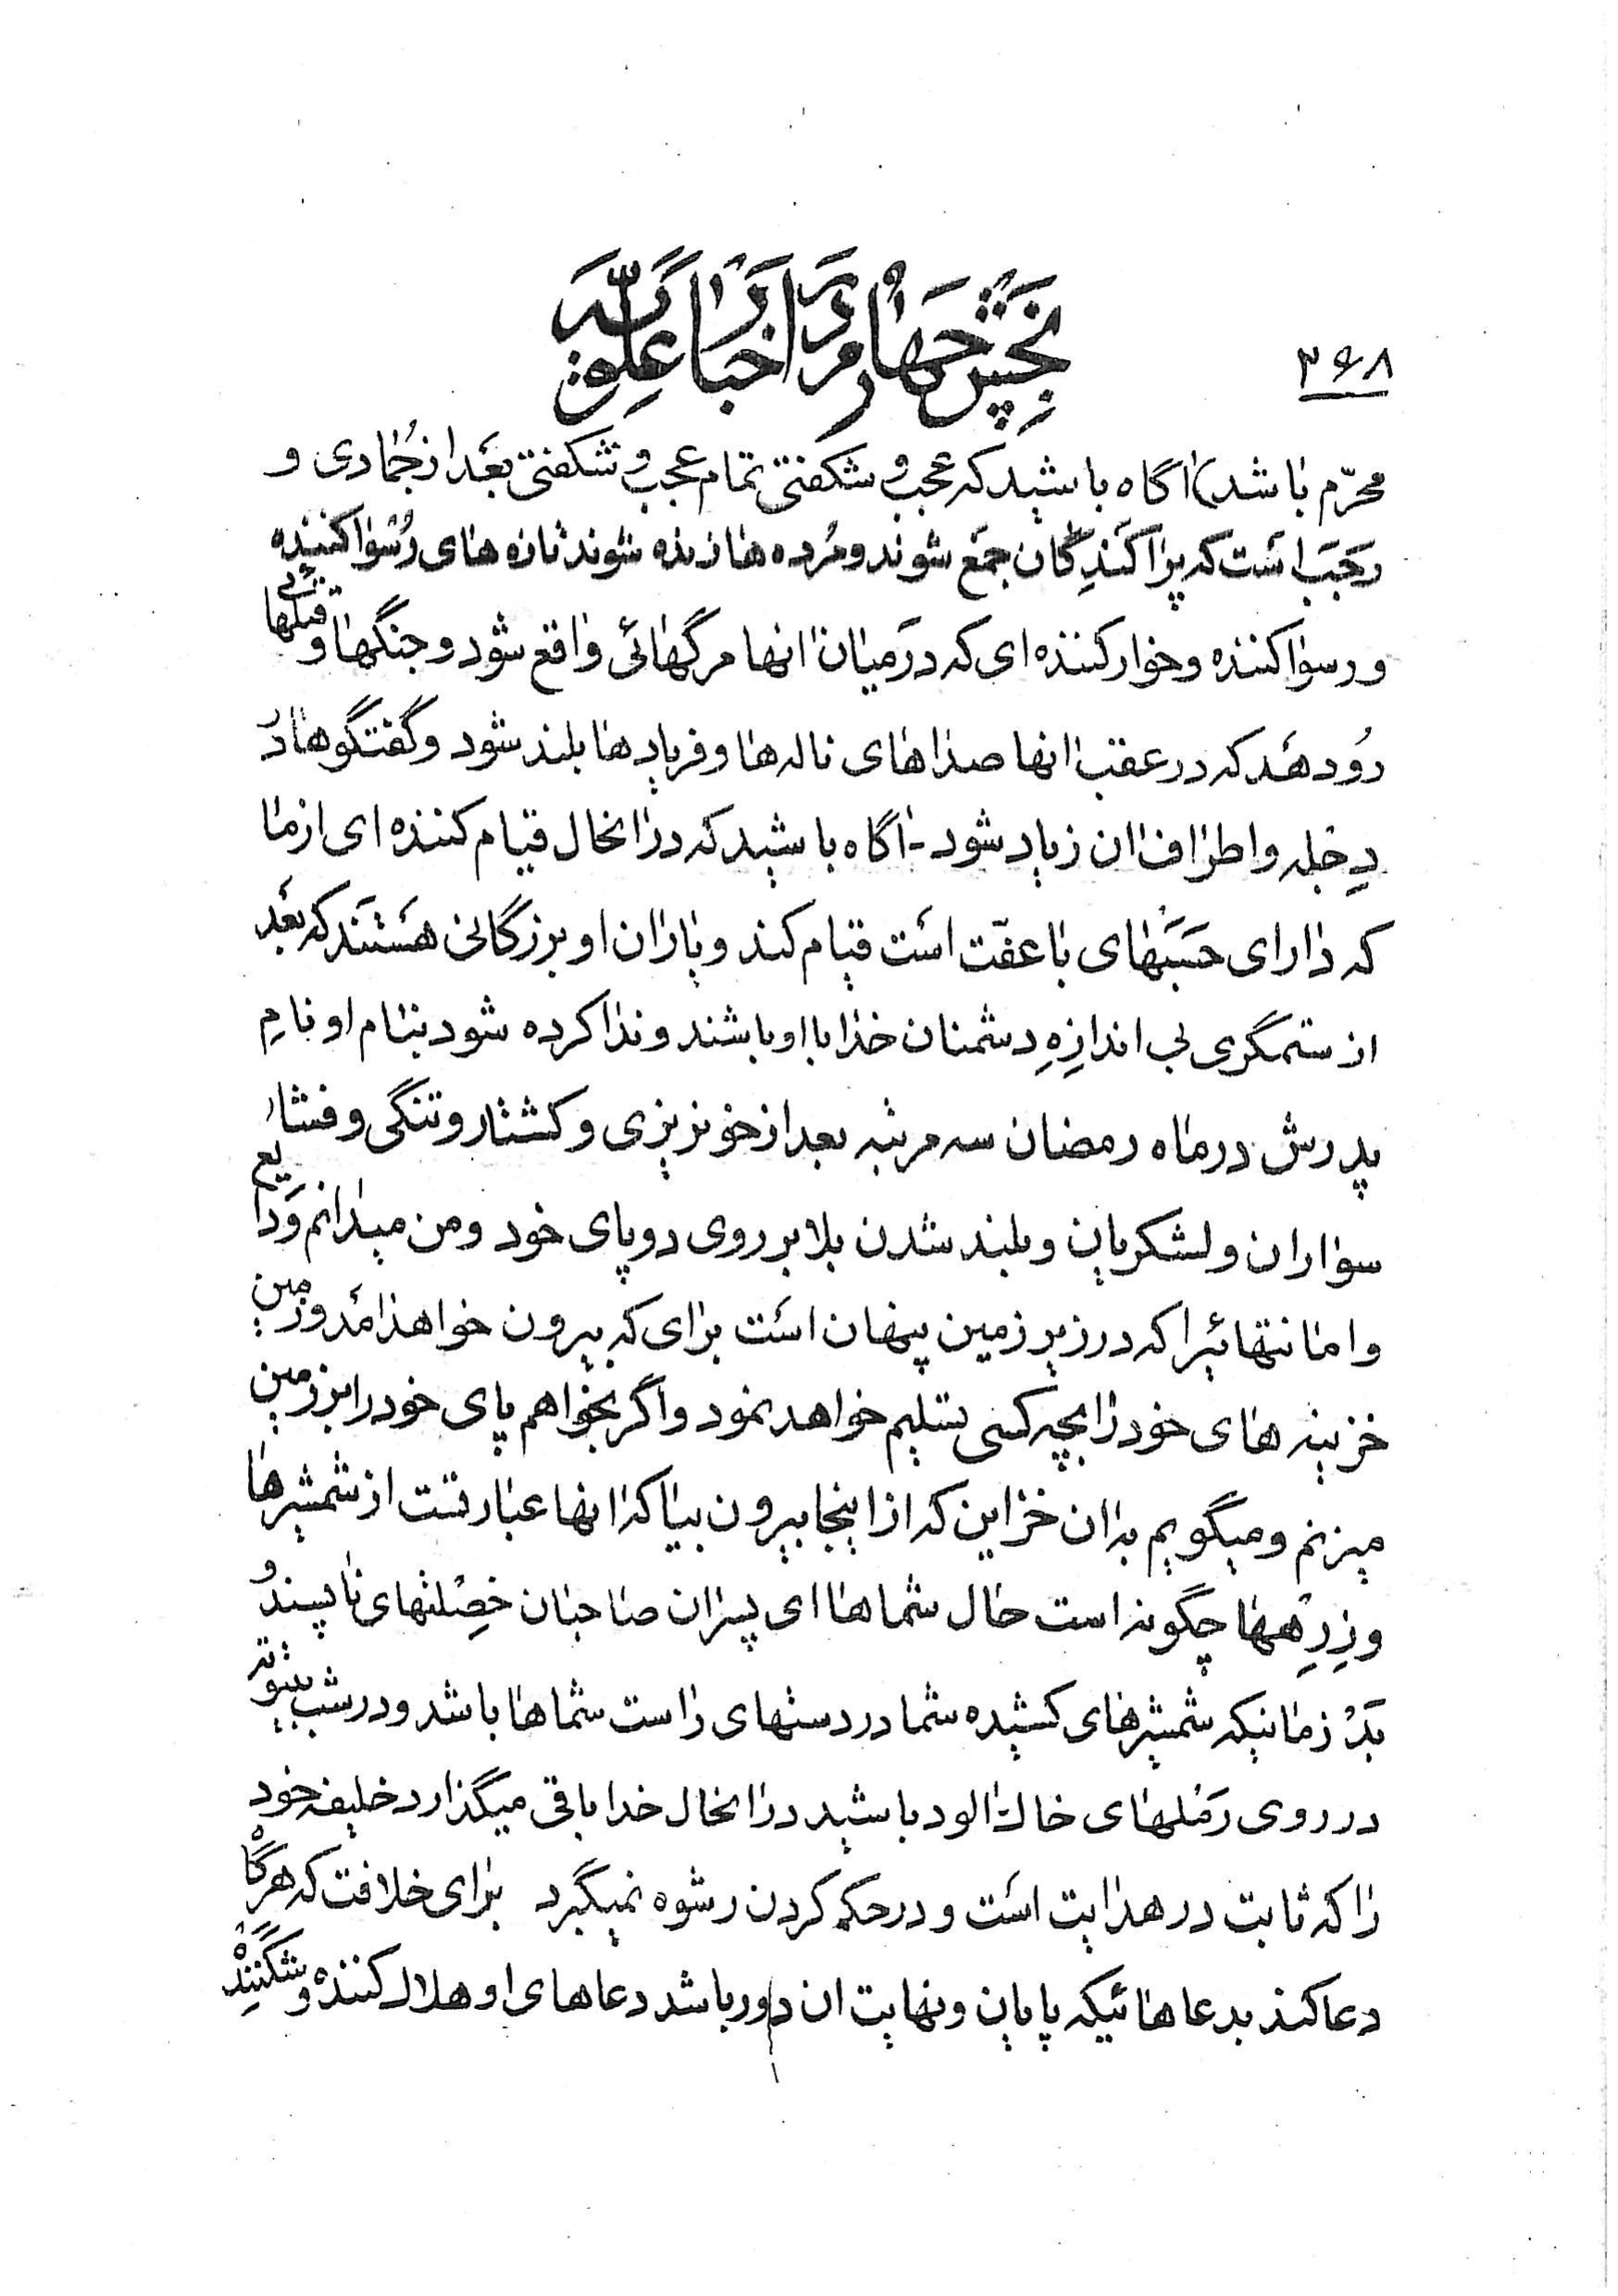 بخش چهارم در اخبار علویّه
۳۶۸
محرّم باشد) آگاه باشید که عجب و شگفتی تمام عجب و شگفتی بعد از جُمادی و
رَجَب است که پراکَندِگان جمع شوند و مُرده ها زنده شوند تازه های رُسْوا کننده
و رسوا کننده و خوار کننده ای که در میان انها مرگهائی واقع شود و جنگها و قتلهائی
رُو دهَد که در عقب انها صداهای ناله ها و فریادها بلند شود و گفتگوها دَر
دِجله و اطراف ان زیاد شود - آگاه باشید که در انحال قیام کننده ای از ما
که دارای حَسَبهای با عفّت است قیام کند و یاران او بزرگانی هَستَند که بعد
از ستمگری بی اندازهِ دشمنان خدا با او باشند و ندا کرده شود بنام او نامِ
پدرش در ماه رمضان سه مرتبه بعد از خونریزی و کشتار و تنگی و فشار
سواران و لشکریان و بلند شدن بلا بر روی دو پای خود و من میدانم وَدایع
و امانتهائیرا که در زیر زمین پنهان است برای که بیرون خواهد امَد و زمین
خزینه های خود را بچه کسی تسلیم خواهد نمود و اگر بخواهم پای خود را بر زمین
میزنم و میگویم به ان خزاین که از اینجا بیرون بیا که انها عبارتست از شمشیرها
و زِرِهها چگونه است حال شماها ای پسران صاحبان خِصْلتهای ناپسند و
بَدْ زمانیکه شمشیرهای کشیده شما در دستهای راست شماها باشد و در شب
در روی رَمْلهای خاک الود باشید در انحال خدا باقی میگذارد خلیفه خود
را که ثابت در هدایت است و در حکم کردن رشوه نمیگیرد برای خلافت که هرگاه
دعا کند بدعاهائیکه پایان و نهایت ان دور باشد دعاهای او هلاک کننده و شکننده